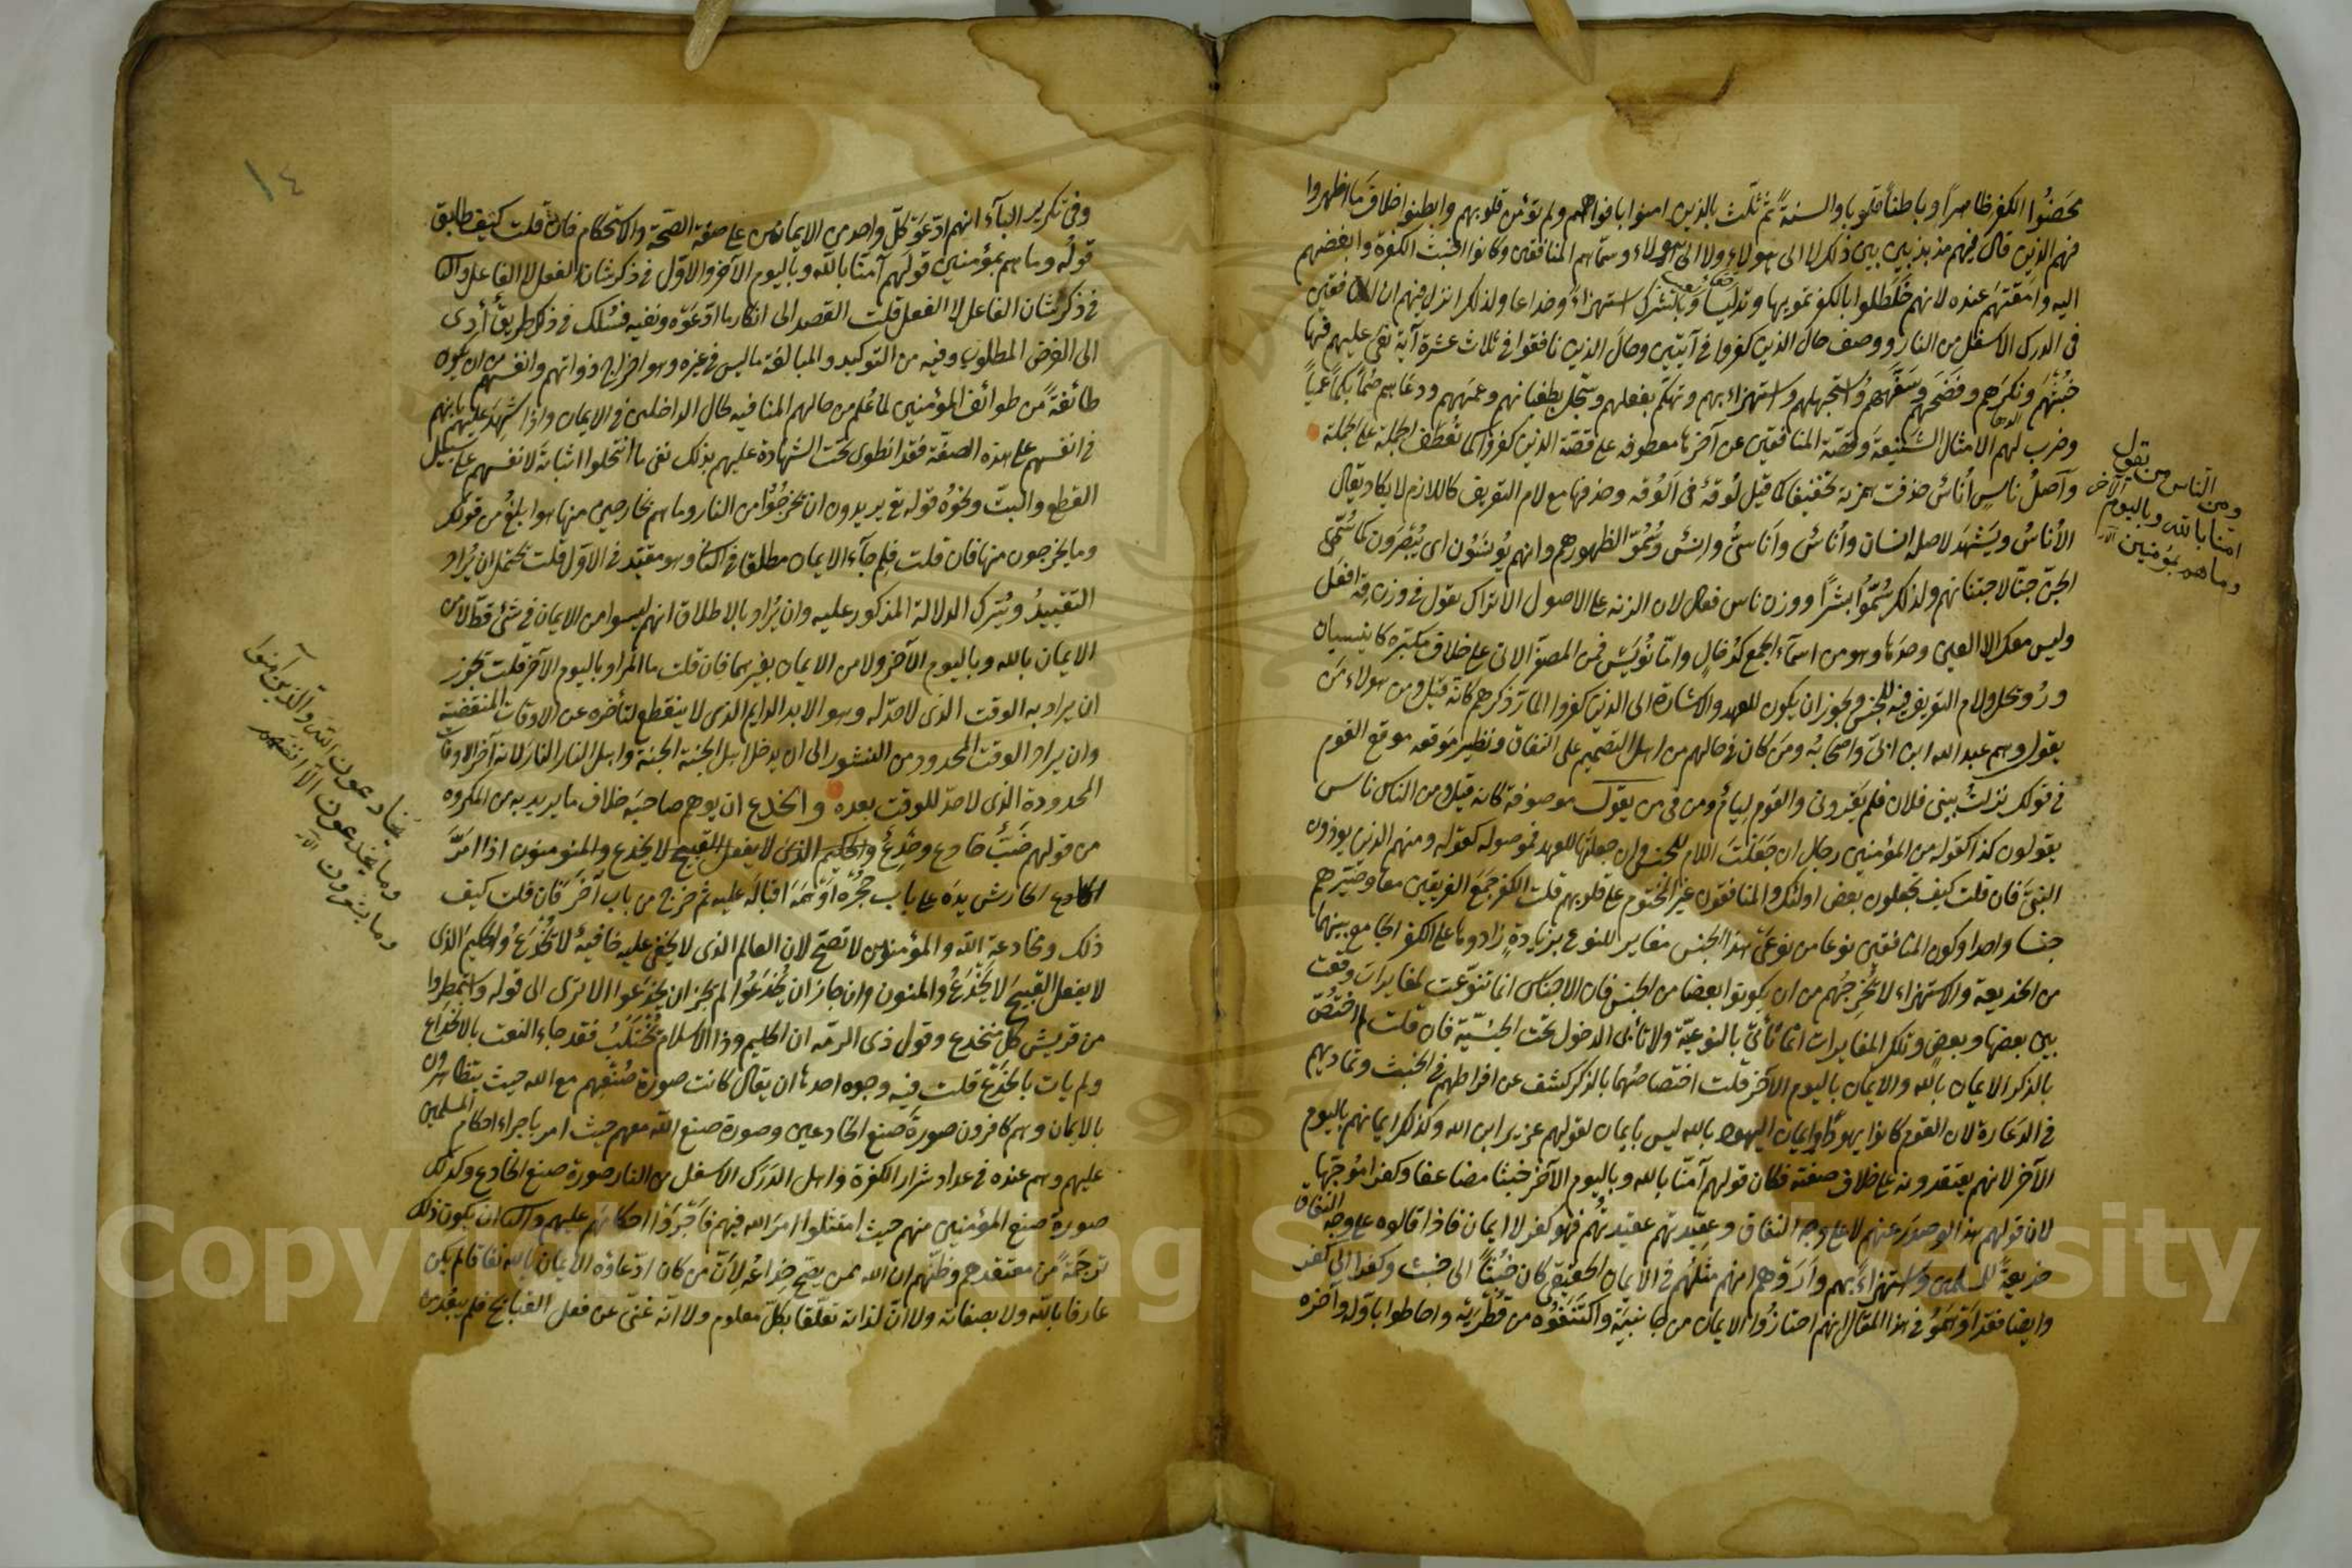 محضوا الكفر ظاهرا وباطنا قلوبا والسنة ثم ثلّث بالذين امنوا بافواههم ولم تؤمن قلوبهم وابطنوا خلاف ما اظهروا
فهم الذين قال فيهم مذبذبين بين ذلك لا الى هولاء ولا الى هولاء وسماهم المنافقين وكانوا اخبث الكفرة وابغضهم
اليه وامقتهم عنده لانهم خلطوا بالكفر تمويها وتدليسا وبالشرك استهزاء وخداعا ولذلك انزل فيهم ان المنافقين
في الدرك الاسفل من النار ووصف حال الذين كفروا في آيتين وحال الذين نافقوا في ثلاث عشرة آية نعى عليهم فيها
خبثهم ونكرهم وفضحهم وسفّههم واستجهلهم واستهزاء بهم وتهكم بفعلهم وسجّل بطغيانهم وعمههم ودعاهم صمّا بكما عميا
وضرب لهم الامثال الشنيعة وقصّة المنافقين عن آخرها معطوفة على قصّة الذين كفروا كما تعطف الجملة على الجملة
وآصل ناس أناس حذفت همزته تخفيفا كما قيل لوقة في الوقة وحذفها مع لام التعريف كاللازم لا يكاد يقال
الأناس ويشهد لاصله انسان وأناس وأناسىّ وانس وسمّوا لظهورهم وانهم يونسون اى يبصرون كما سمّى
الجنّ جنّا لاجتنانهم ولذلك سمّوا بشرا ووزن ناس فعال لان الزنة على الاصول الاتراك تقول في وزن قه افعل
وليس معك الا العين وحدها وهو من اسماء الجمع كرخال وامّا نويس فمن المصغّر الاتى على خلاف مكبّره كانيسيان
ورويجل ولام التعريف فيه للجنس ويجوز ان يكون للعهد والاشارة الى الذين كفروا المارّ ذكرهم كانه قيل ومن هولاء من
يقول وهم عبد الله ابن ابىّ واصحابه ومن كان في حالهم من اهل التصميم على النفاق ونظير موقعه موقع القوم
في قولك نزلت ببنى فلان فلم يقرونى والقوم ليام ومن في من يقول موصوفة كانه قيل ومن الناس ناس
يقولون كذا كقوله من المؤمنين رجال ان جعلت اللام للجنس وان جعلتها للعهد فموصولة كقوله ومنهم الذين يوذون
النبىّ فان قلت كيف تجعلون بعض اولئك والمنافقون غير المختوم على قلوبهم قلت الكفر جمع الفريقين معا وصيّرهم
جنسا واحدا وكون المنافقين نوعا من نوعى هذا الجنس مغاير للنوع بزيادة زادوها على الكفر الجامع بينهما
من الخديعة والاستهزاء لا تخرجهم من ان يكونوا بعضا من الجنس فان الاجناس انما تنوّعت لمغايرات وقعت
بين بعضها وبعض وتلك المغايرات انما تأتى بالنوعيّة ولا تأبى الدخول تحت الجنسيّة فان قلت لم اختصّ
بالذكر الايمان بالله والايمان باليوم الآخر قلت اختصاصهما بالذكر كشف عن افراطهم في الخبث وتماديهم
في الدعارة لان القوم كانوا يهودا وايمان اليهود بالله ليس بايمان لقولهم عزير ابن الله وكذلك ايمانهم باليوم
الآخر لانهم يعتقدونه على خلاف صفته فكان قولهم آمنّا بالله وباليوم الآخر خبثا مضاعفا وكفرا موجّها
لان قولهم هذا لو صدر عنهم لا على وجه النفاق وعقيدتهم عقيدتهم فهو كفر لا ايمان فاذا قالوه على وجه النفاق
خديعة للمسلمين واستهزاء بهم وأروهم انهم مثلهم في الايمان الحقيقي كان خبثا الى خبث وكفرا الى كفر
وايضا فقد اوهموا في هذا المقال انهم احتازوا الايمان من جانبيه واكتنفوه من قطريه واحاطوا باوّله وآخره
ومن الناس من يقول
امنا بالله وباليوم الآخر
وما هم بمؤمنين الآ
١٤
وفي تكرير الباء انهم ادّعوا كلّ واحد من الايمانين على صفة الصّحة والاستحكام فان قلت كيف طابق
قوله وما هم بمؤمنين قولهم آمنّا بالله وباليوم الآخر والاوّل في ذكر شان الفعل لا الفاعل والثا
في ذكر شان الفاعل لا الفعل قلت القصد الى انكار ما ادّعوّه ونفيه فسلك في ذلك طريق أدى
الى الغرض المطلوب وفيه من التوكيد والمبالغة ما ليس في غيره وهو اخراج ذواتهم وانفسهم من ان يكون
طائفة من طوائف المؤمنين لما علم من حالهم المنافيه لحال الداخلين في الايمان واذا شهد عليهم بانهم
في انفسهم على هذه الصفة فقد انطوى تحت الشهادة عليهم بذلك نفى ما انتحلوا اثباته لانفسهم على سبيل
القطع والبتّ ونحوه قوله تع يريدون ان يخرجوا من النار وما هم بخارجين منها هو ابلغ من قولك
وما يخرجون منها فان قلت فلم جآء الايمان مطلقا في الثا وهو مقيّد في الاوّل قلت تحتمل ان يراد
التقييد ويترك الدلالة المذكور عليه وان يراد بالاطلاق انهم ليسوا من الايمان في شئ قط لا من
الايمان بالله وباليوم الآخر ولا من الايمان بغيرهما فان قلت ما المراد باليوم الآخر قلت تجوز
ان يراد به الوقت الذى لا حدّ له وهو الابد الدايم الذى لا ينقطع لتأخره عن الاوقات المنقضية
وان يراد الوقت المحدود من النشور الى ان يدخل اهل الجنة الجنة واهل النار النار لانه آخر الاوقات
المحدودة الذى لا حدّ للوقت بعده والخدع ان يوهم صاحبه خلاف ما يريد به من المكروه
من قولهم ضبّ خادع وخدع والحكيم الذى لا يفعل القبيح لا يخدع والمنومنون اذا امرّ
الخادع الحارش يده على باب حجره اوهمه اقباله عليه ثم خرج من باب آخر فان قلت كيف
ذلك ومخادعة الله والمؤمنون لا تصحّ لان العالم الذى لا يخفى عليه خافية لا يخدع والحكيم الذى
لا يفعل القبيح لا يخدع والمنون وان جاز ان يخدعوا لم يجز ان يخدعوا الا ترى الى قوله واستمطروا
من قريش كلّ منخدع وقول ذى الرمّه ان الحليم وذا الاسلام يختلب فقد جاء النعت بالانخداع
ولم يات بالخدع قلت فيه وجوه احدها ان يقال كانت صورة صنعهم مع الله حيث يتظاهرون
بالايمان وهم كافرون صورة صنع الخادعين وصورة صنع الله معهم حيث امر باجراء احكام المسلمين
عليهم وهم عنده في عداد شرار الكفرة واهل الدرك الاسفل من النار صورة صنع الخادع وكذلك
صورة صنع المؤمنين منهم حيث امتثلوا امر الله فيهم فاجروا احكامهم عليهم والثا ان يكون ذلك
ترجمة من معتقدهم وظنّهم ان الله ممن يصحّ خداعه لانّ من كان ادّعاؤه الايمان بالله نفاقا لم يكن
عارفا بالله ولا بصفاته ولا انّ لذاته تعلّقا بكلّ معلوم ولا انّه غنىّ عن فعل القبائح فلم يبعد من
يخادعون الله والذين آمنوا
وما يخدعون الا انفسهم
وما يشعرون الآية
Copyright © King Saud University